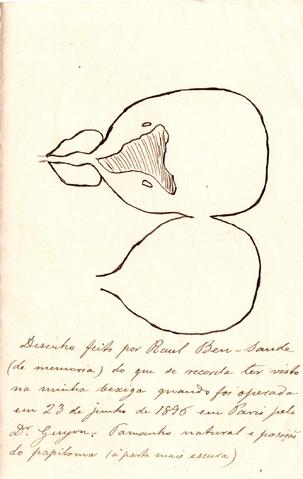 Desenho feito por Raul Ben-Saude
(de memoria) do que se recorda ter visto
na minha bexiga quando foi operada
em 23 de junho de 1896 em Paris pelo
Dr. Guyon. Tamanho natural e posição
do papiloma (a parte mais escura)